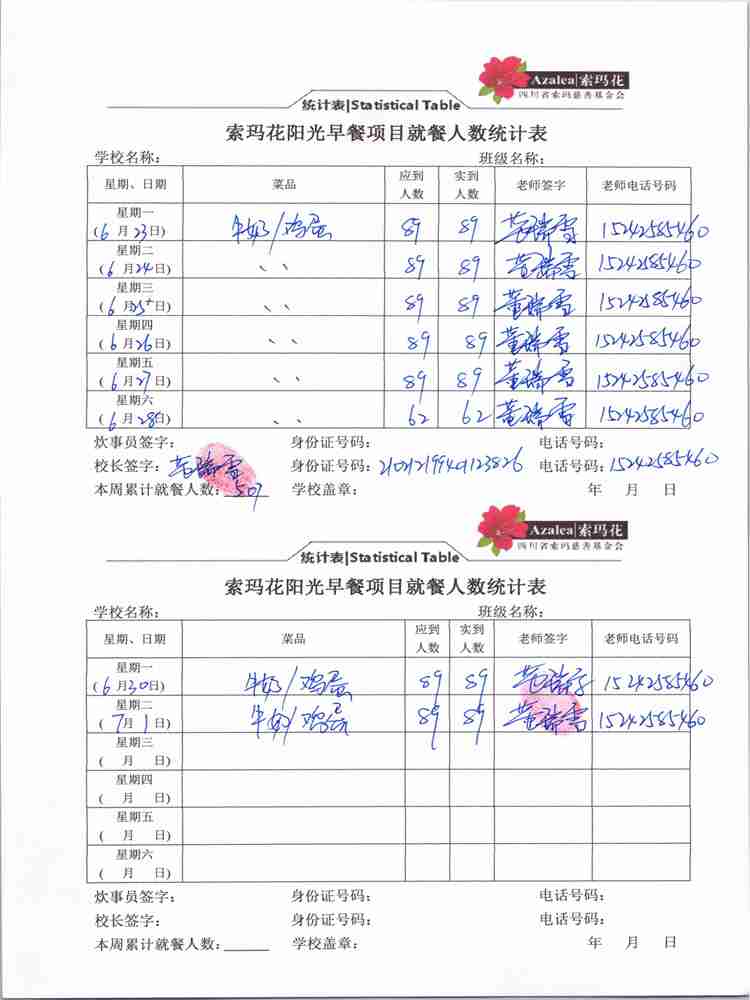 Azalea|索玛花
四川省索玛慈善基金会
统计表|Statistical Table
索玛花阳光早餐项目就餐人数统计表
学校名称： 班级名称：
星期、日期 菜品 应到人数 实到人数 老师签字 老师电话号码
星期一
(6月23日) 牛奶/鸡蛋 89 89 董瑞雪 15242585460
星期二
(6月24日) 、、 89 89 董瑞雪 15242585460
星期三
(6月25日) 、、 89 89 董瑞雪 15242585460
星期四
(6月26日) 、、 89 89 董瑞雪 15242585460
星期五
(6月27日) 、、 89 89 董瑞雪 15242585460
星期六
(6月28日) 、、 62 62 董瑞雪 15242585460
炊事员签字： 身份证号码： 电话号码：
校长签字：董瑞雪 身份证号码： 电话号码：15242585460
本周累计就餐人数：507 学校盖章： 年 月 日
Azalea|索玛花
四川省索玛慈善基金会
统计表|Statistical Table
索玛花阳光早餐项目就餐人数统计表
学校名称： 班级名称：
星期、日期 菜品 应到人数 实到人数 老师签字 老师电话号码
星期一
(6月30日) 牛奶/鸡蛋 89 89 董瑞雪 15242585460
星期二
(7月1日) 牛奶/鸡蛋 89 89 董瑞雪 15242585460
星期三
( 月 日)
星期四
( 月 日)
星期五
( 月 日)
星期六
( 月 日)
炊事员签字： 身份证号码： 电话号码：
校长签字： 身份证号码： 电话号码：
本周累计就餐人数： 学校盖章： 年 月 日